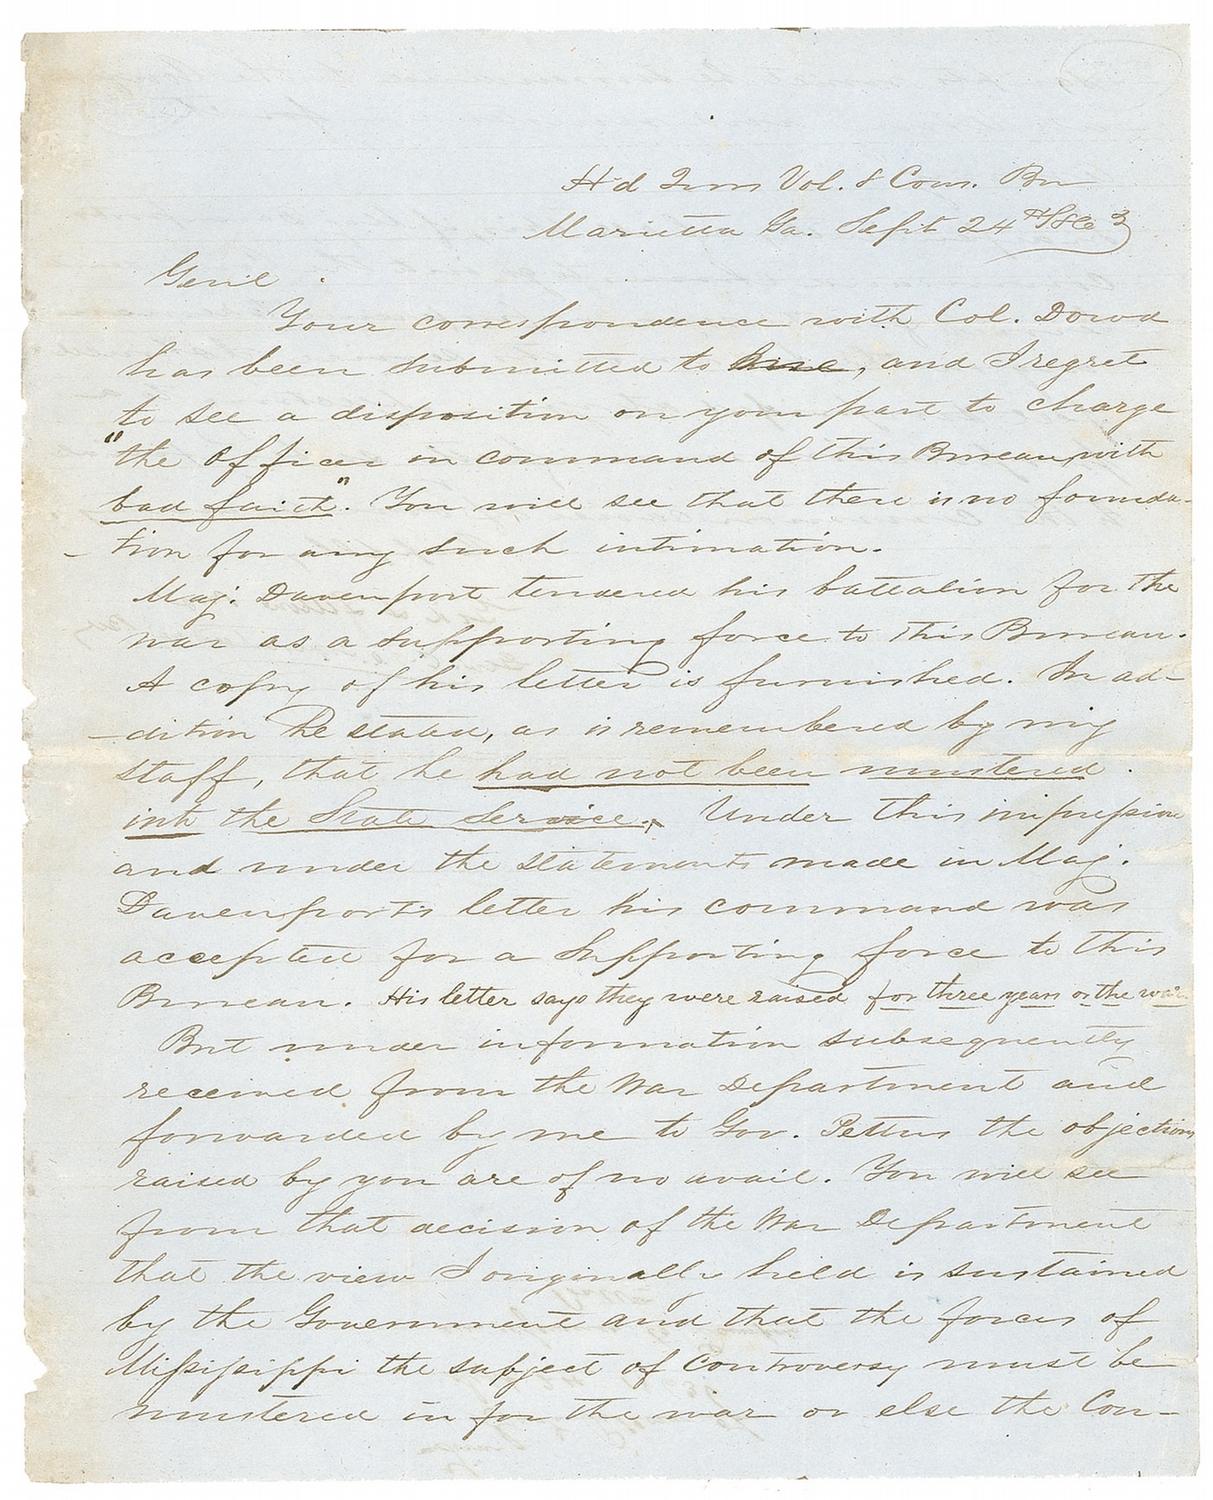 Hd Qurs Vol. & Cons. Bu
Marietta Ga. Sept 24th 1863
Genl
Your correspondence with Col. Dowd
has been submitted to me, and I regret
to see a disposition on your part to charge
"the officer in command of this Bureau with
bad faith". You will see that there is no founda-
-tion for any such intimation.
Maj. Davenport tendered his battalion for the
war as a supporting force to this Bureau.
A copy of his letter is furnished. In ad-
-dition he stated, as is remembered by my
staff, that he had not been mustered
into the State Service. Under this impression
and under the statements made in Maj.
Davenport's letter his command was
accepted for a supporting force to this
Bureau. His letter says they were raised for three years or the war.
But under information subsequently
received from the War Department and
forwarded by me to Gov. Pettus the objections
raised by you are of no avail. You will see
from that decision of the War Department
that the view I originally held is sustained
by the Government and that the forces of
Mississippi the subject of controversy must be
mustered in for the war or else the Con-